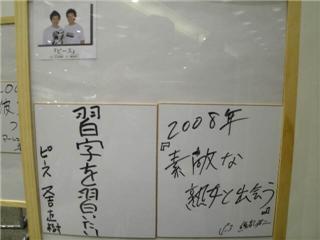 『ピース』
習字を習いたい
ピース 又吉直樹
2008年
『素敵な
熟女と出会う』